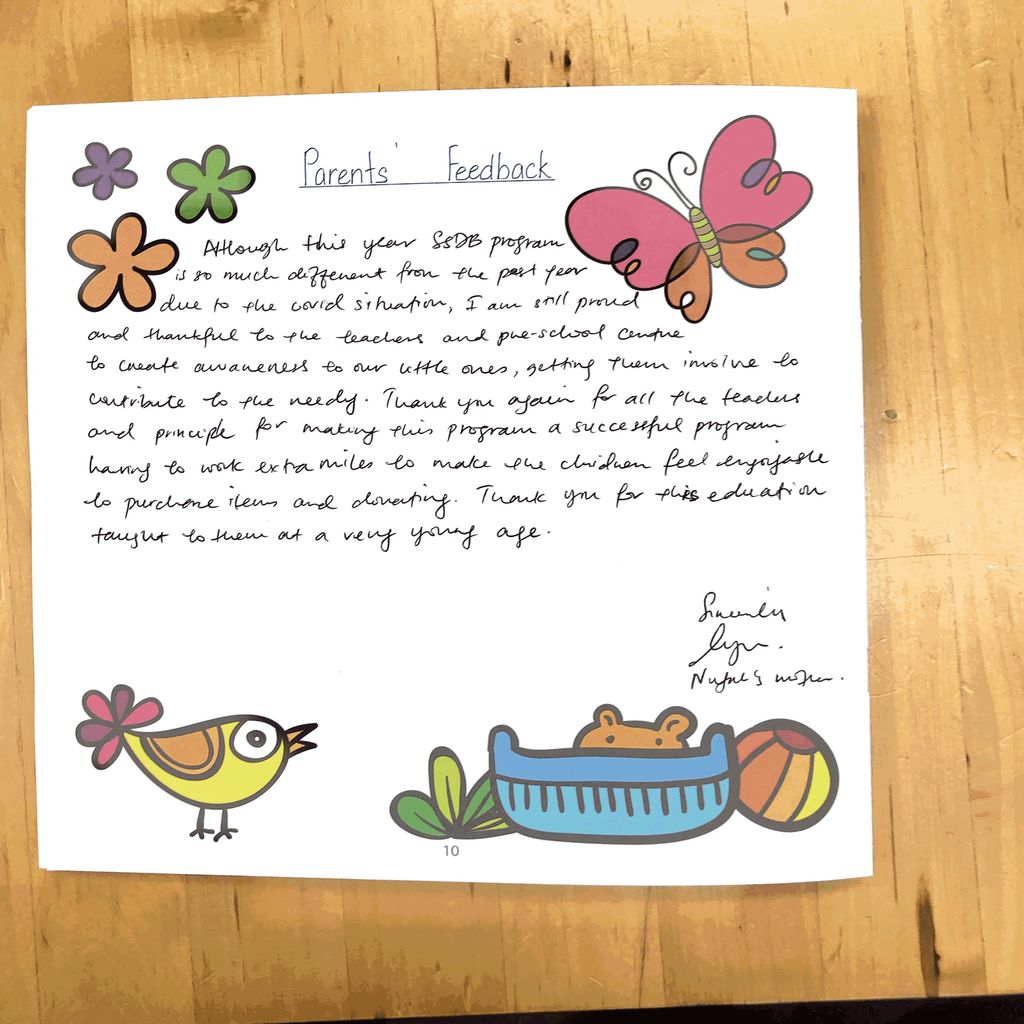 Parents' Feedback
Although this year SSDB program
is so much different from the past year
due to the covid situation, I am still proud
and thankful to the teachers and pre-school centre
to create awareness to our little ones, getting them involve to
contribute to the needy. Thank you again for all the teachers
and principle for making this program a successful program
having to work extra miles to make the children feel enjoyable
to purchase items and donating. Thank you for this education
taught to them at a very young age.
Sincerely
mother.
10